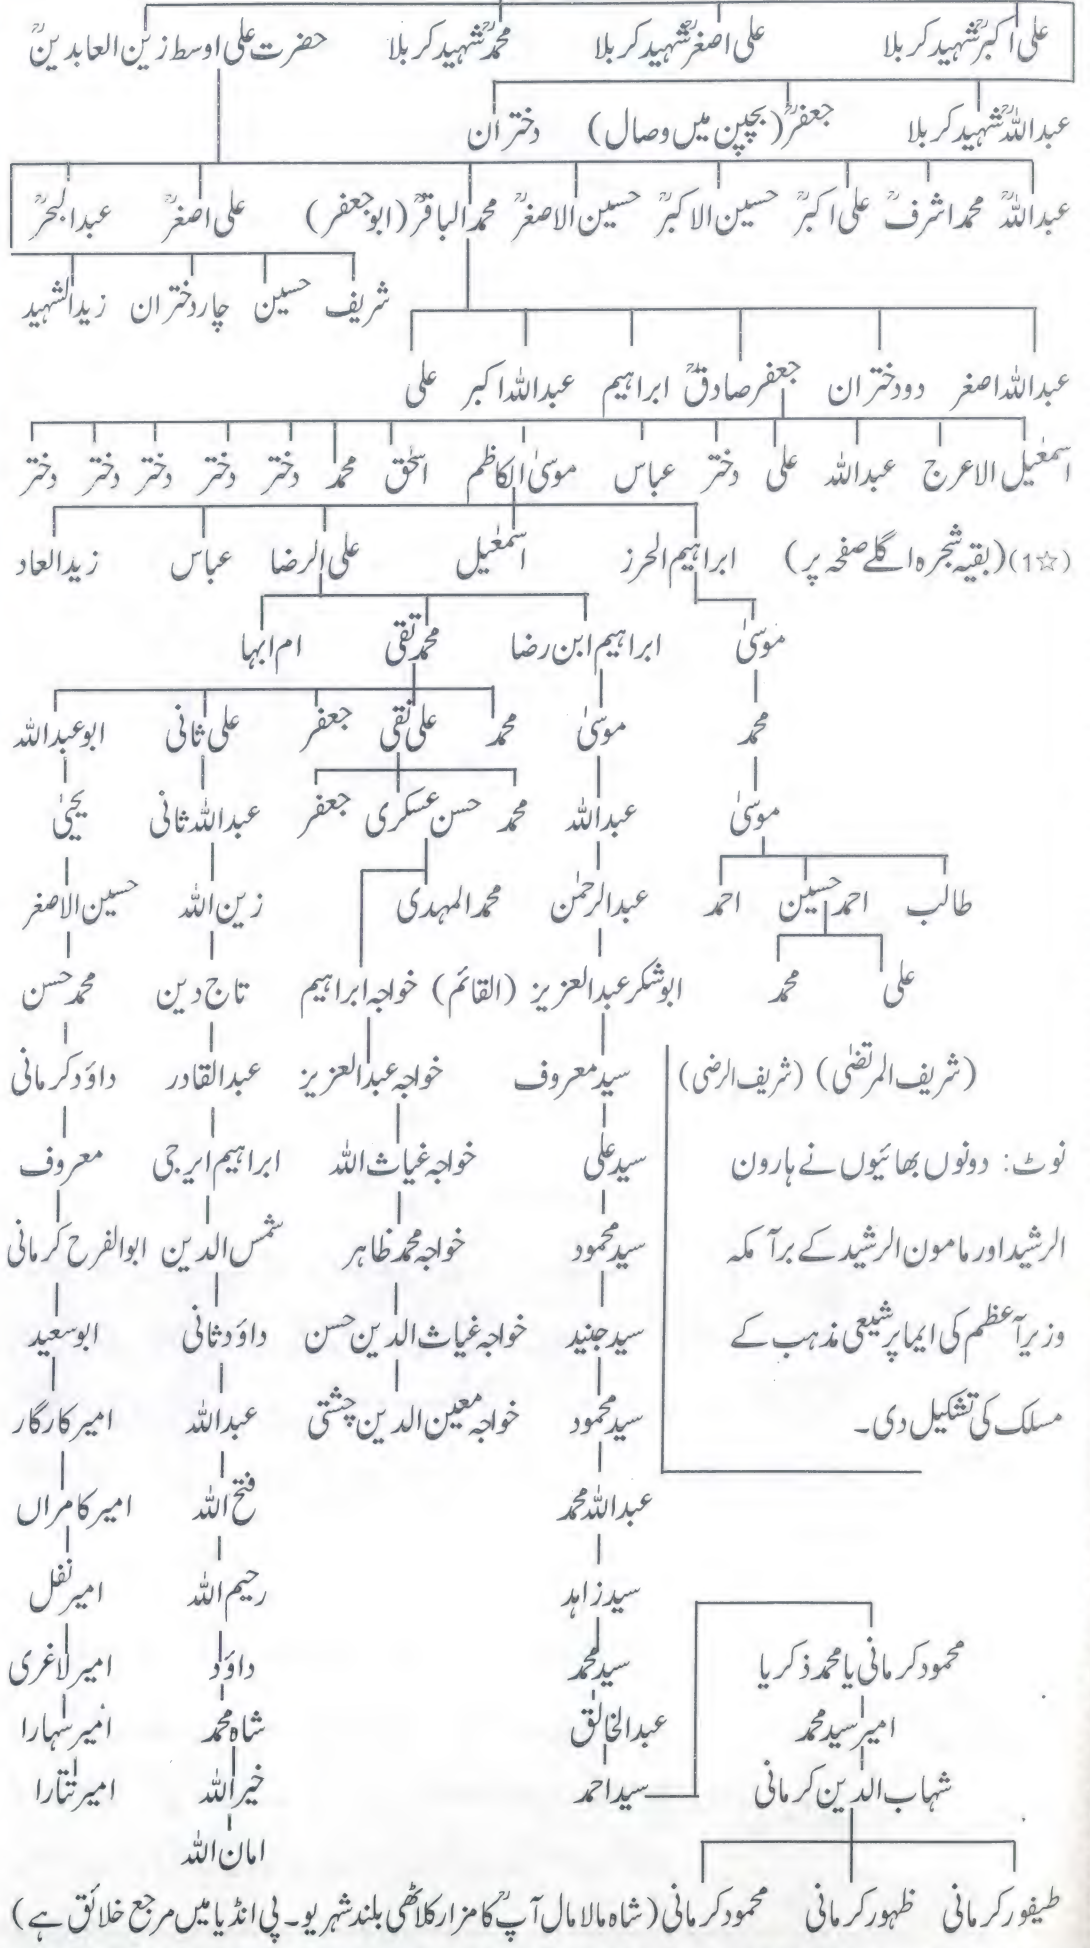 علی اکبرؓ شہید کربلا علی اصغرؓ شہید کربلا محمدؓ شہید کربلا حضرت علی اوسط زین العابدینؓ
عبداللہؓ شہید کربلا جعفرؓ (بچپن میں وصال) دختران
عبداللہؒ محمد اشرفؒ علی اکبرؒ حسین الاکبرؒ حسین الاصغرؒ محمد الباقرؒ (ابو جعفر) علی اصغرؒ عبدالبحرؒ
شریف حسین چار دختران زید الشہید
عبداللہ اصغر دو دختران جعفر صادقؒ ابراہیم عبداللہ اکبر علی
اسمٰعیل الاعرج عبداللہ علی دختر عباس موسیٰ الکاظم اسحٰق محمد دختر دختر دختر دختر دختر
(☆1) (بقیہ شجرہ اگلے صفحہ پر) ابراہیم الحرز اسمٰعیل علی الرضا عباس زید العاد
موسیٰ ابراہیم ابن رضا محمد تقی ام ابہا
محمد موسیٰ محمد علی نقی جعفر علی ثانی ابو عبداللہ
موسیٰ عبداللہ محمد حسن عسکری جعفر عبداللہ ثانی یحییٰ
طالب احمد حسین احمد عبدالرحمٰن محمد المہدی زین اللہ حسین الاصغر
علی محمد ابو شکر عبدالعزیز (القائم) خواجہ ابراہیم تاج دین محمد حسن
(شریف المرتضٰی) (شریف الرضی) سید معروف خواجہ عبدالعزیز عبدالقادر داؤد کرمانی
نوٹ: دونوں بھائیوں نے ہارون سید علی خواجہ غیاث اللہ ابراہیم ایرجی معروف
الرشید اور مامون الرشید کے برآمکہ سید محمود خواجہ محمد ظاہر شمس الدین ابوالفرح کرمانی
وزیر آعظم کی ایما پر شیعی مذہب کے سید جنید خواجہ غیاث الدین حسن داؤد ثانی ابو سعید
مسلک کی تشکیل دی۔ سید محمود خواجہ معین الدین چشتی عبداللہ امیر کارگار
عبداللہ محمد فتح اللہ امیر کامراں
سید زاہد رحیم اللہ امیر نفل
محمود کرمانی یا محمد ذکریا سید محمد داؤد امیر لاغری
امیر سید محمد عبدالخالق شاہ محمد امیر سہارا
شہاب الدین کرمانی سید احمد خیر اللہ امیر تتارا
امان اللہ
طیفور کرمانی ظہور کرمانی محمود کرمانی (شاہ مالا مال آپؒ کا مزار کلاٹھی بلند شہر یو۔پی انڈیا میں مرجع خلائق ہے)